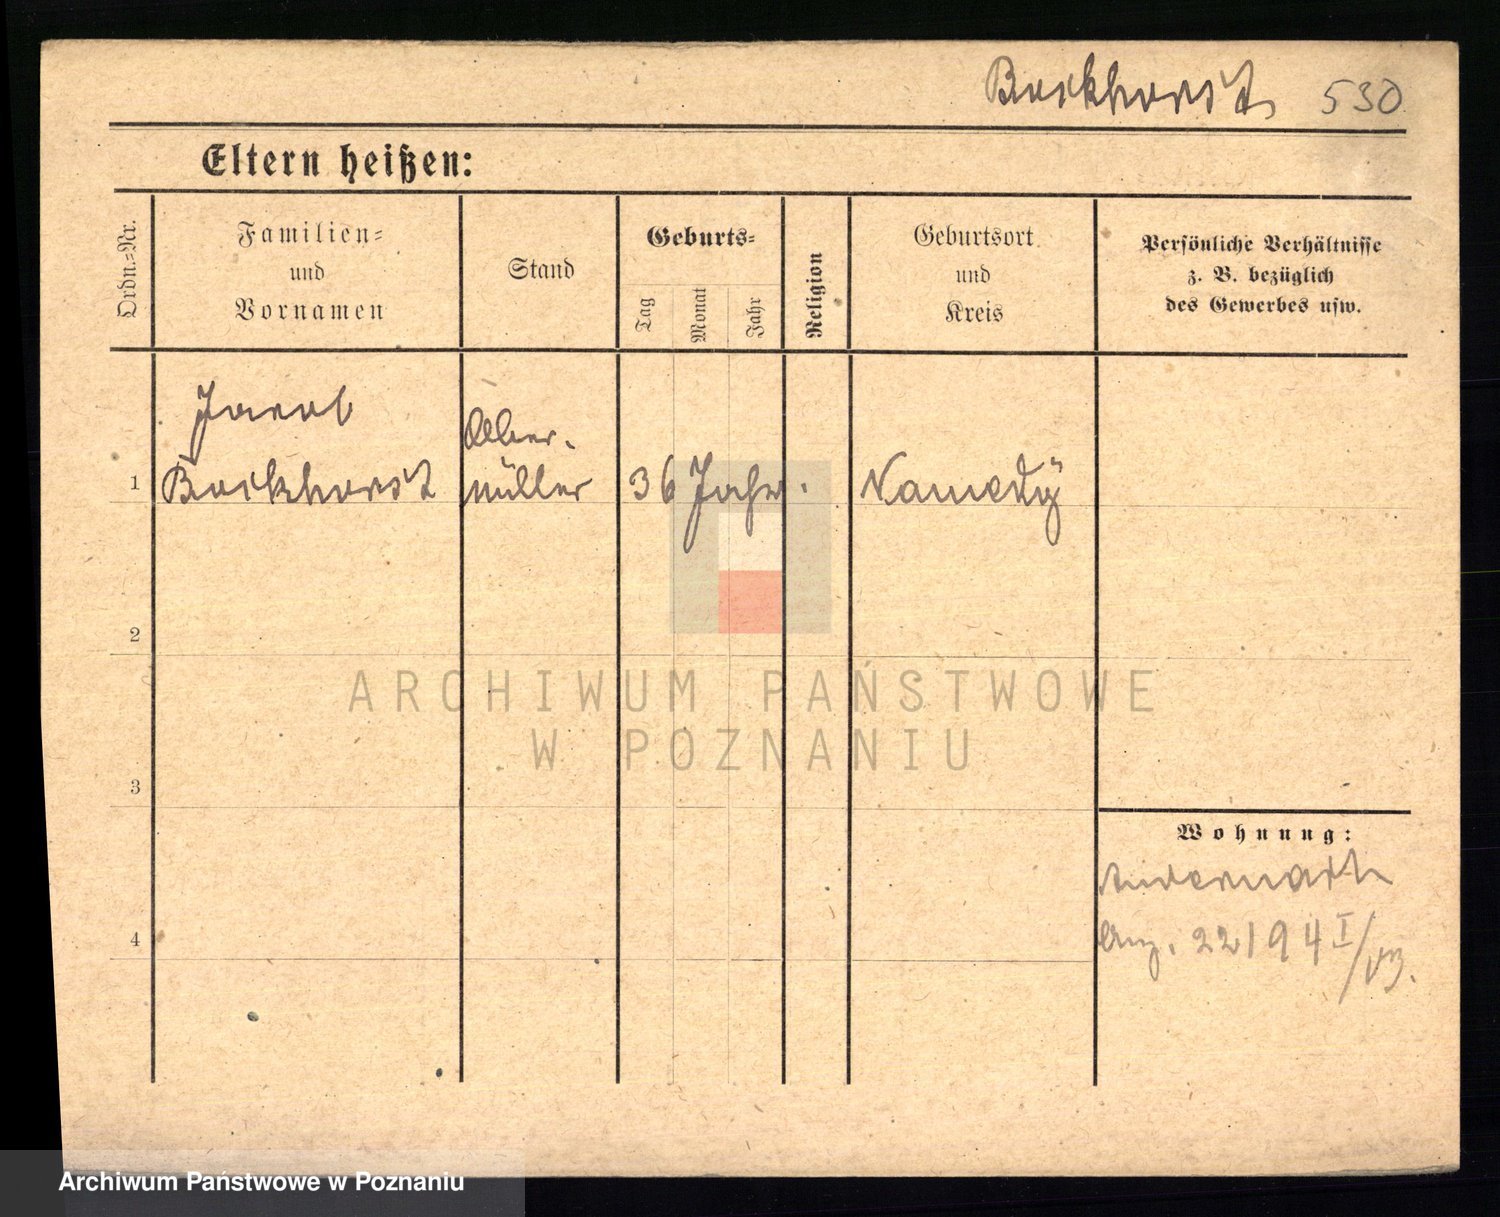 Bockhorst 530
Eltern heißen:
Ordn.-Nr.
Familien-
und
Vornamen
Stand
Geburts-
Tag
Monat
Jahr
Religion
Geburtsort
und
Kreis
Persönliche Verhältnisse
z. B. bezüglich
des Gewerbes usw.
Jacob
1 Bockhorst müller 36 Jahr. Namedÿ
2
3
Wohnung:
Andernach
4 22194 I/
ARCHIWUM PAŃSTWOWE
W POZNANIU
Archiwum Państwowe w Poznaniu